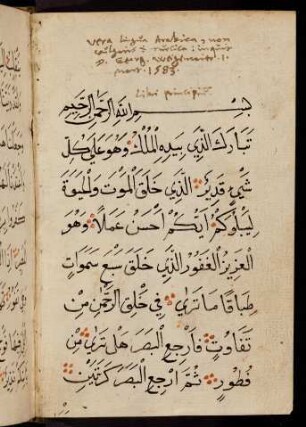 vera lingua Arabica, non
vulgaris & rustica: inquit
D. Georg.
1583.
Libri principium
بسم الله الرحمن الرحيم
تبارك الذي بيده الملك وهو على كل
شيء قدير الذي خلق الموت والحيوة
ليبلوكم ايكم احسن عملا وهو
العزيز الغفور الذي خلق سبع سموات
طباقا ما ترى في خلق الرحمن من
تفاوت فارجع البصر هل ترى من
فطور ثم ارجع البصر كرتين